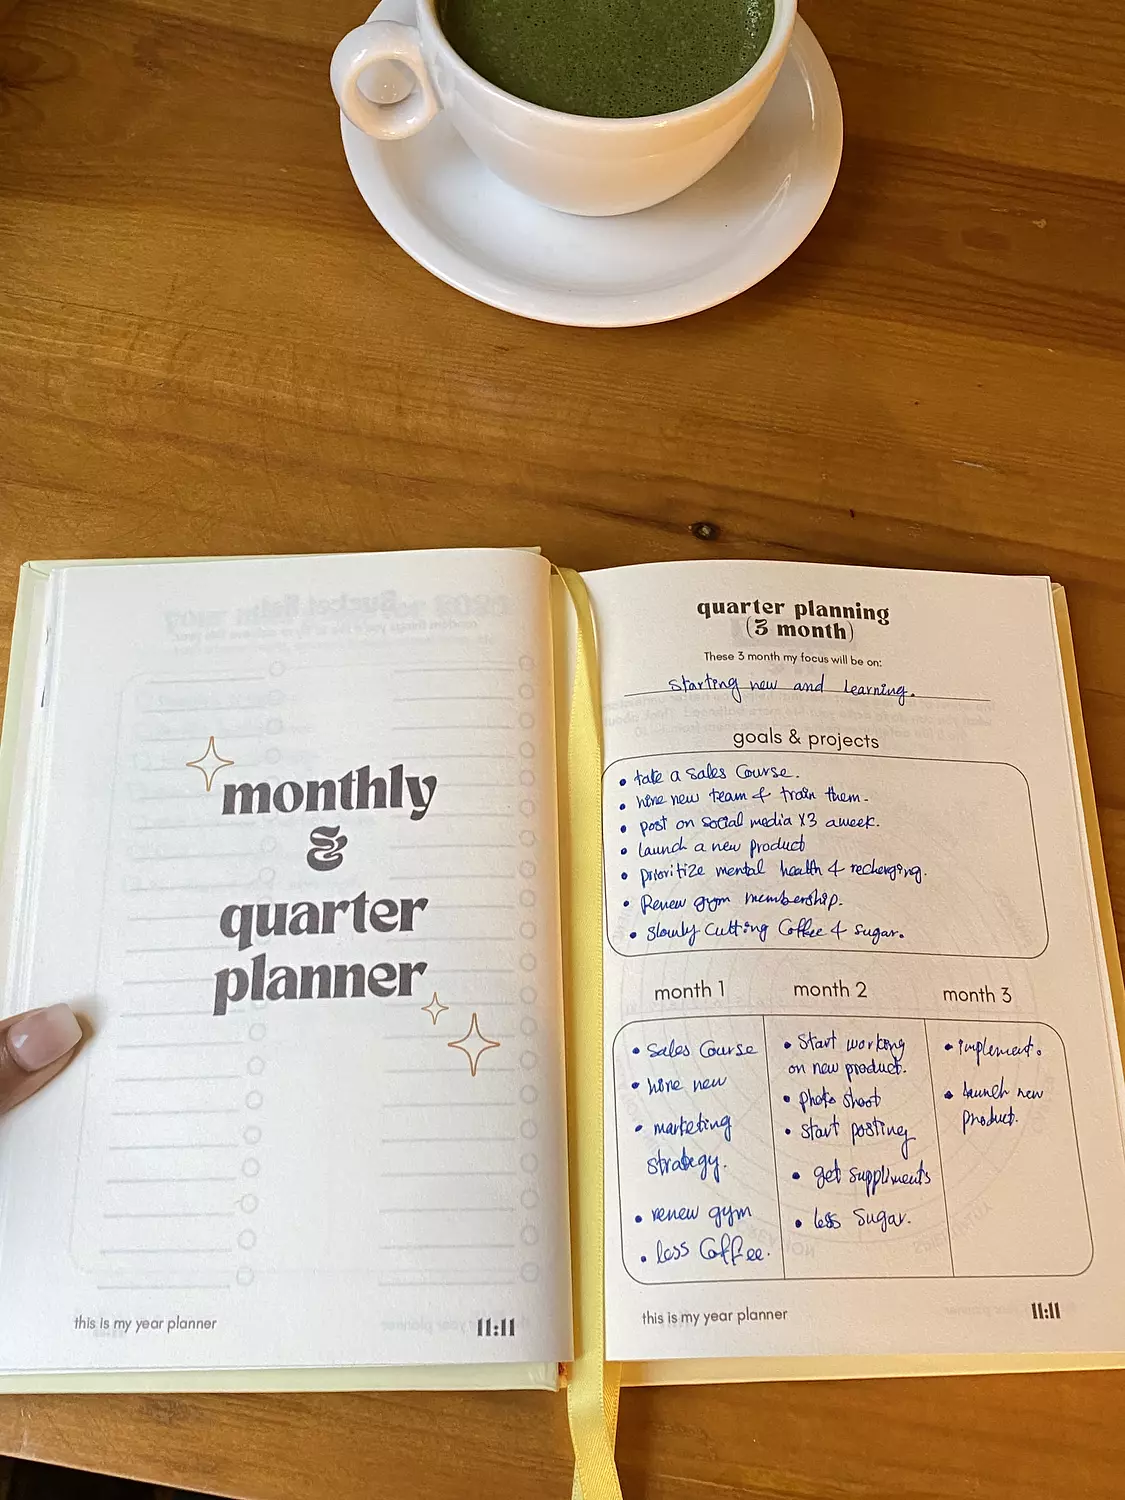 monthly
&
quarter
planner
this is my year planner
11:11
quarter planning
(3 month)
These 3 month my focus will be on:
Starting new and learning.
goals & projects
• take a sales Course.
• hire new team & train them.
• post on social media X3 aweek.
• launch a new product
• prioritize mental health & recherging.
• Renew gym membership.
• Slowly cutting Coffee & sugar.
month 1
month 2
month 3
• Sales Course
• hire new
• marketing
strategy.
• renew gym
• less Coffee.
• Start working
on new product.
• photo shoot
• start posting
• get suppliments
• less Sugar.
• implement.
• launch new
product.
this is my year planner
11:11